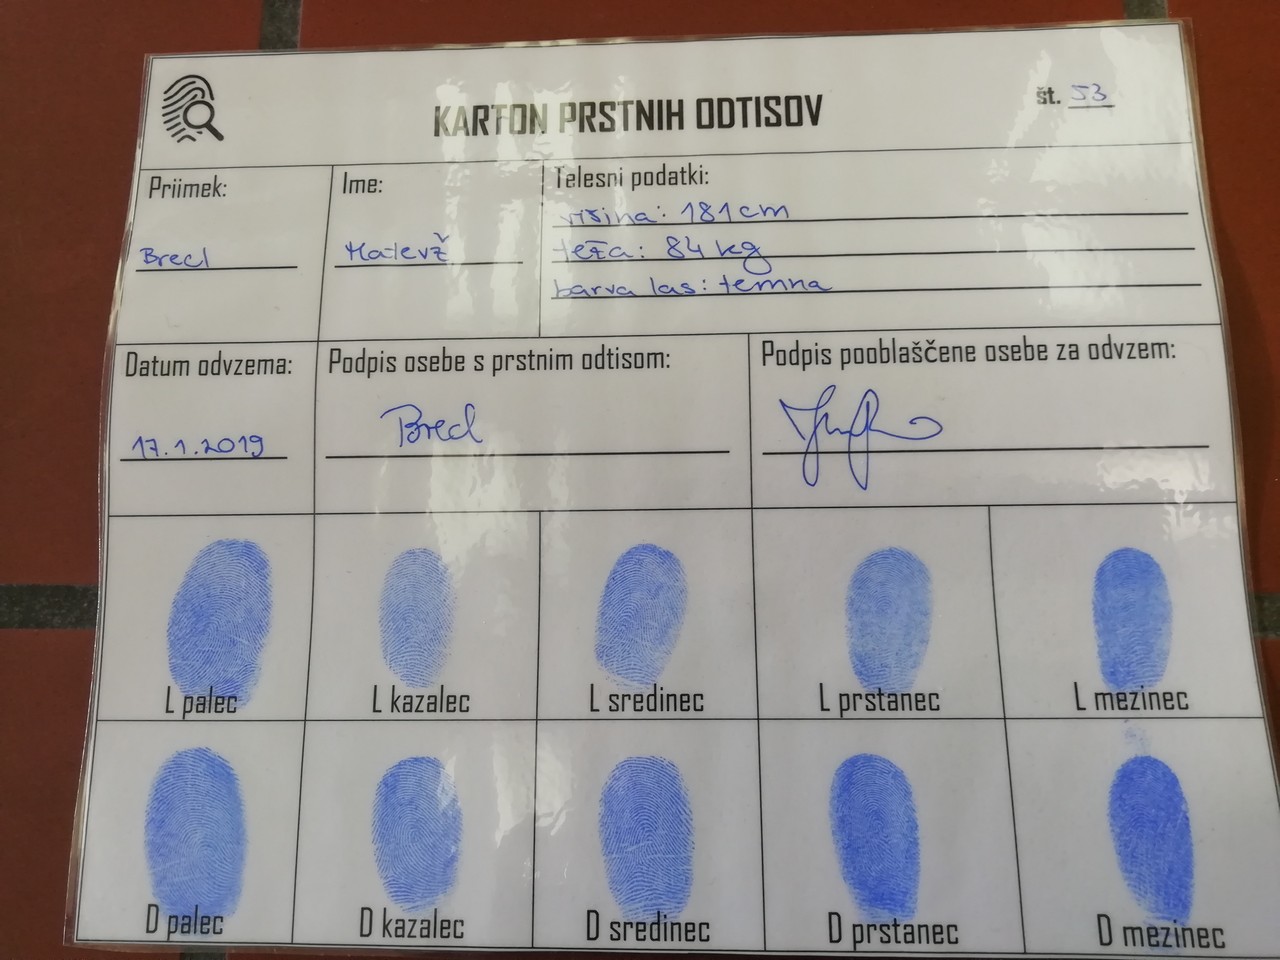 KARTON PRSTNIH ODTISOV
št. 53
Priimek:
Brecl
Ime:
Matevž
Telesni podatki:
višina: 181cm
teža: 84 kg
barva las: temna
Datum odvzema:
17.1.2019
Podpis osebe s prstnim odtisom:
Brecl
Podpis pooblaščene osebe za odvzem:
L palec
L kazalec
L sredinec
L prstanec
L mezinec
D palec
D kazalec
D sredinec
D prstanec
D mezinec